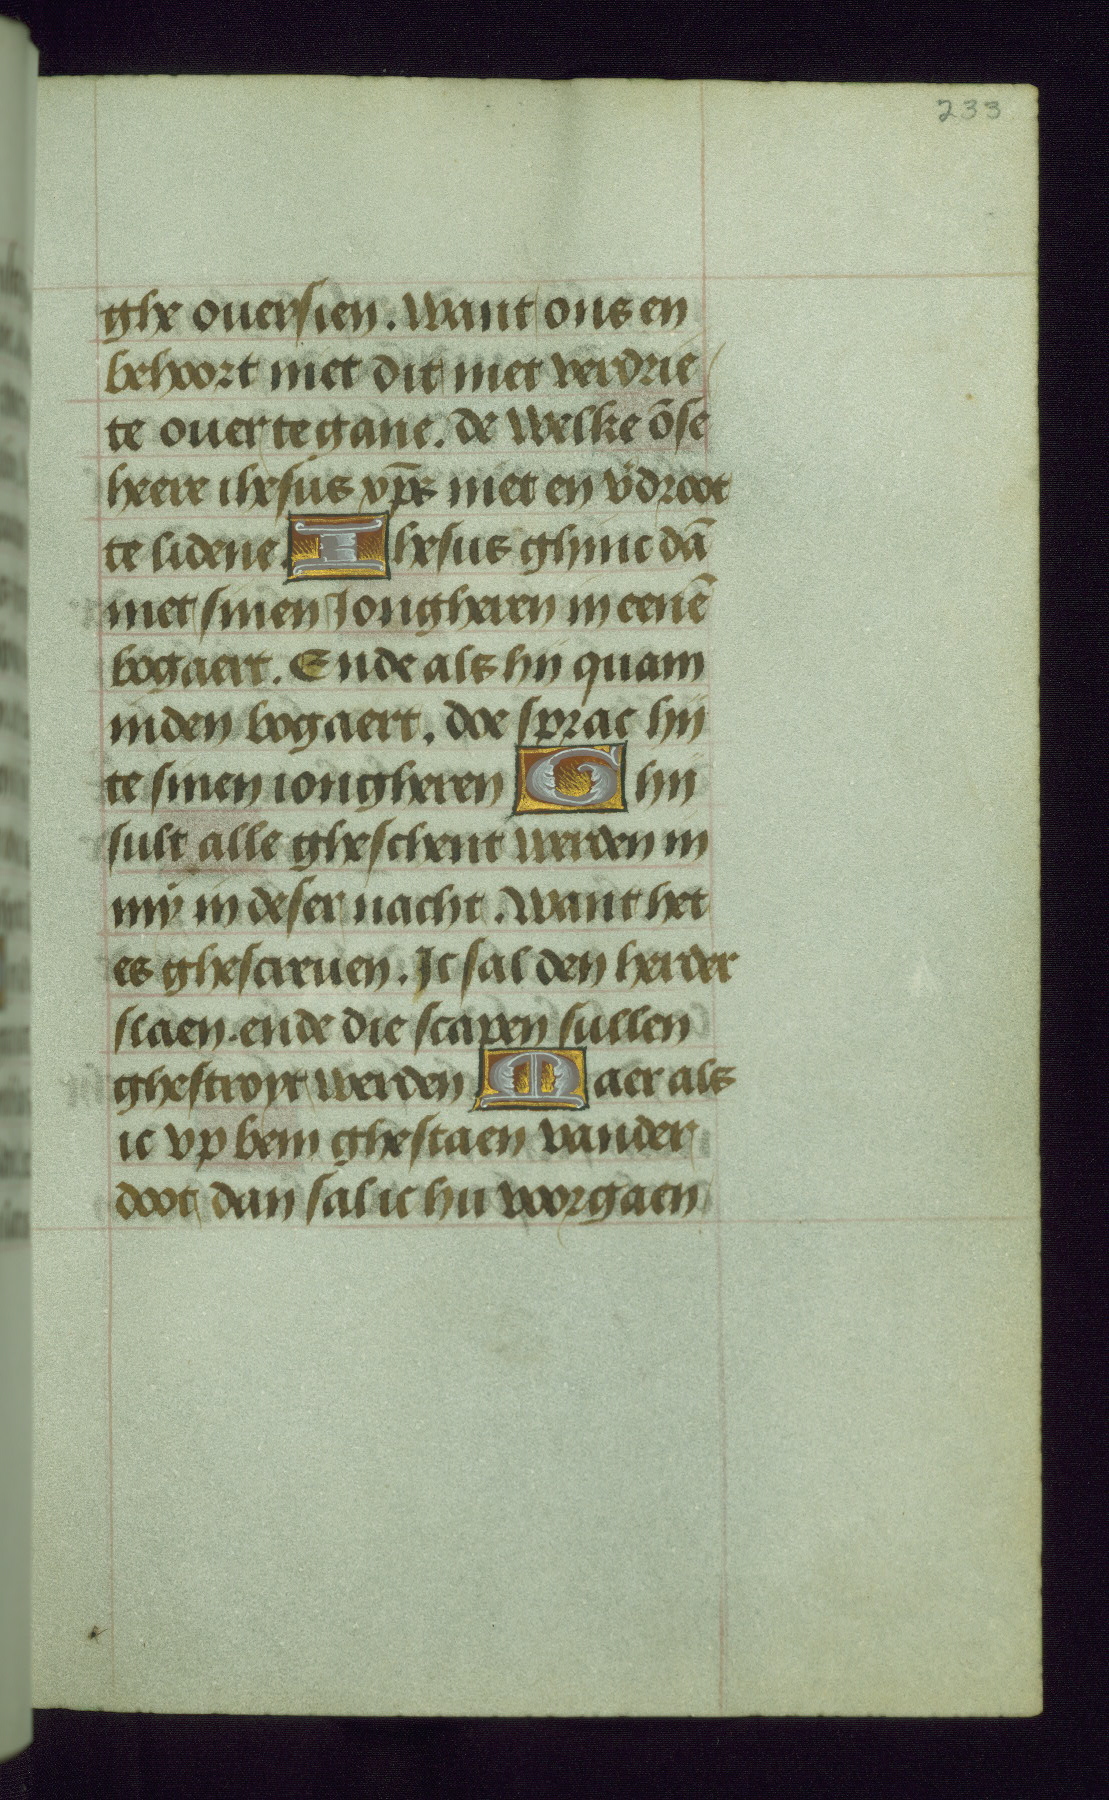 233
ghe ouersien. Want ons en
behoort niet dit met verdrie
te ouer te gane. de welke o̅se
heere ihesus xp̅s niet en v̓droot
te lidene. Ihesus ghinc da̅
met sinen Iongheren in eene̅
bogaert. Ende als hij quam
inden bogaert, doe sprac hij
te sinen iongheren Ghij
sult alle gheschent werden in
mij in deser nacht. Want het
es ghescreuen. Ic sal den herder
slaen. ende die scapen sullen
ghestroyt werden Maer als
ic vp bem ghestaen vander
doot dan sal ic hu voorgaen